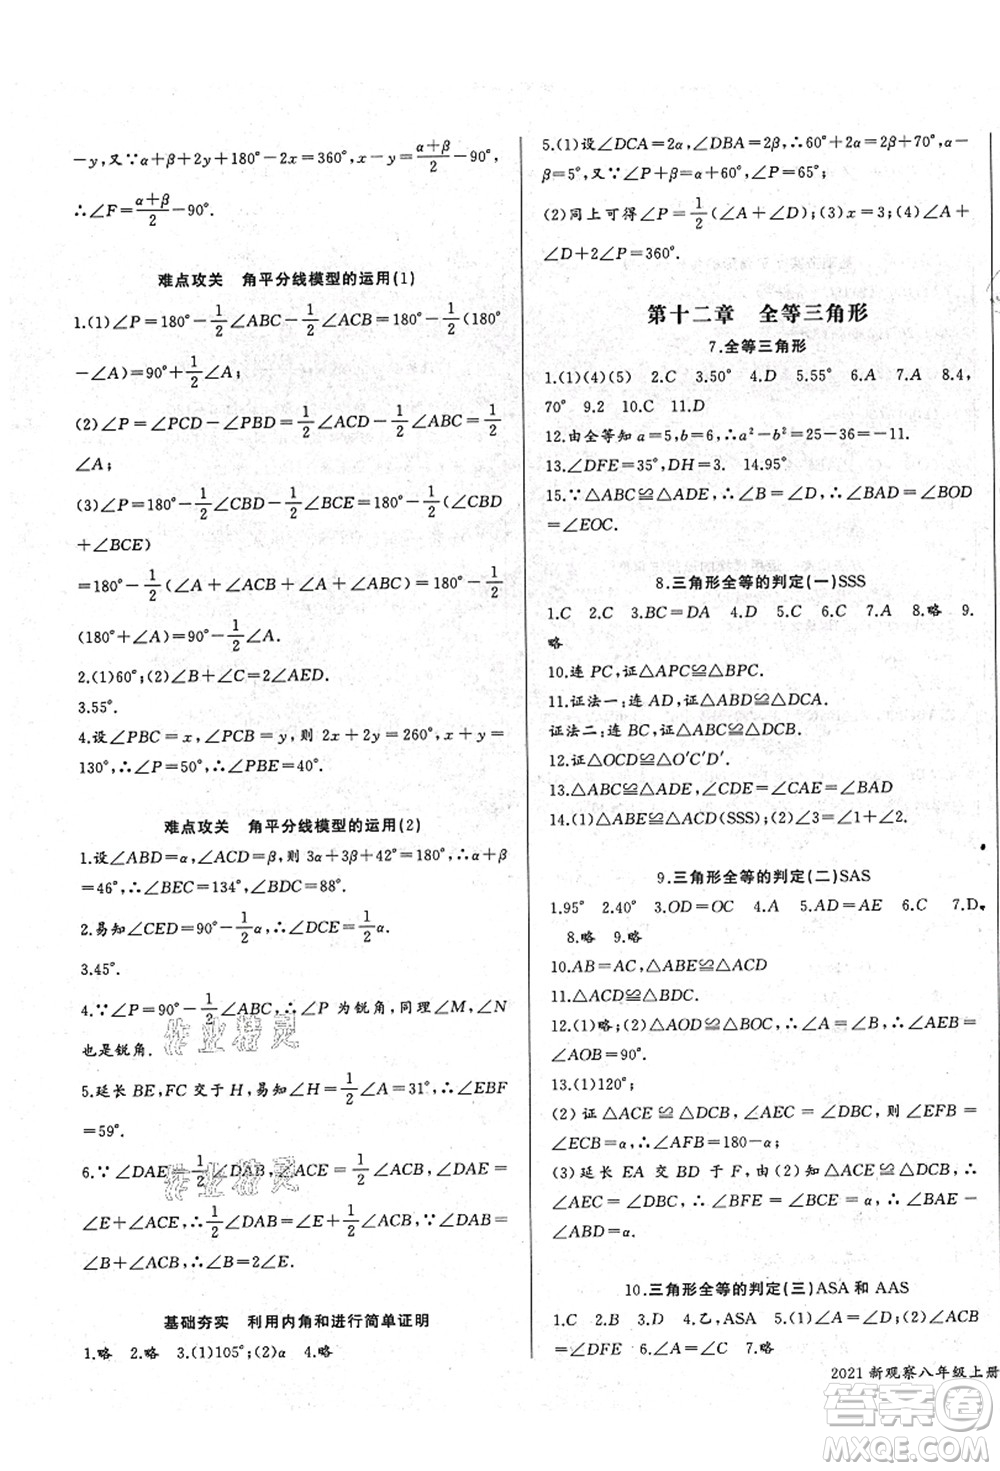 －y，又∵α＋β＋2y＋180°－2x＝360°，x－y＝(α＋β)/2－90°，
∴∠F＝(α＋β)/2－90°.
难点攻关　角平分线模型的运用(1)
1.(1)∠P＝180°－1/2∠ABC－1/2∠ACB＝180°－1/2(180°
－∠A)＝90°＋1/2∠A；
(2)∠P＝∠PCD－∠PBD＝1/2∠ACD－1/2∠ABC＝1/2
∠A；
(3)∠P＝180°－1/2∠CBD－1/2∠BCE＝180°－1/2(∠CBD
＋∠BCE)
＝180°－1/2(∠A＋∠ACB＋∠A＋∠ABC)＝180°－1/2
(180°＋∠A)＝90°－1/2∠A.
2.(1)60°；(2)∠B＋∠C＝2∠AED.
3.55°.
4.设∠PBC＝x，∠PCB＝y，则 2x＋2y＝260°，x＋y＝
130°，∴∠P＝50°，∴∠PBE＝40°.
难点攻关　角平分线模型的运用(2)
1.设∠ABD＝α，∠ACD＝β，则 3α＋3β＋42°＝180°，∴α＋β
＝46°，∴∠BEC＝134°，∠BDC＝88°.
2.易知∠CED＝90°－1/2α，∴∠DCE＝1/2α.
3.45°.
4.∵∠P＝90°－1/2∠ABC，∴∠P 为锐角，同理∠M，∠N
也是锐角.
5.延长 BE，FC 交于 H，易知∠H＝1/2∠A＝31°，∴∠EBF
＝59°.
6.∵∠DAE＝1/2∠DAB，∠ACE＝1/2∠ACB，∴∠DAE＝
∠E＋∠ACE，∴1/2∠DAB＝∠E＋1/2∠ACB，∵∠DAB＝
∠B＋∠ACB，∴∠B＝2∠E.
基础夯实　利用内角和进行简单证明
1.略　2.略　3.(1)105°；(2)α　4.略
5.(1)设∠DCA＝2α，∠DBA＝2β，∴2α＋10°＝2β＋70°，α－
β＝5°，又∵∠P＋β＝α＋60°，∴∠P＝65°；
(2)同上可得∠P＝1/2(∠A＋∠D)；(3)x＝3；(4)∠A＋
∠D＋2∠P＝360°.
第十二章　全等三角形
7.全等三角形
1.(1)(4)(5)　2.C　3.50°　4.D　5.55°　6.A　7.A　8.4，
70°　9.2　10.C　11.D
12.由全等知 a＝5，b＝6，∴a²－b²＝25－36＝－11.
13.∠DFE＝35°，DH＝3.　14.95°.
15.∵△ABC≌△ADE，∴∠B＝∠D，∴∠BAD＝∠BOD
＝∠EOC.
8.三角形全等的判定(一)SSS
1.C　2.C　3.BC＝DA　4.D　5.C　6.C　7.A　8.略　9.
略
10.连 PC，证△APC≌△BPC.
11.证法一：连 AD，证△ABD≌△DCA.
证法二：连 BC，证△ABC≌△DCB.
12.证△OCD≌△O′C′D′.
13.△ABC≌△ADE，∠CDE＝∠CAE＝∠BAD
14.(1)△ABE≌△ACD(SSS)；(2)∠3＝∠1＋∠2.
9.三角形全等的判定(二)SAS
1.95°　2.40°　3.OD＝OC　4.A　5.AD＝AE　6.C　7.D
8.略　9.略
10.AB＝AC，△ABE≌△ACD
11.△ACD≌△BDC.
12.(1)略；(2)△AOD≌△BOC，∴∠A＝∠B，∴∠AEB＝
∠AOB＝90°.
13.(1)120°；
(2)证△ACE≌△DCB，∴∠AEC＝∠DBC，则∠EFB＝
∠ECB＝α，∴∠AFB＝180－α；
(3)延长 EA 交 BD 于 F，由(2)知△ACE≌△DCB，∴
∠AEC＝∠DBC，∴∠BFE＝∠BCE＝α，∴∠BAE－
∠ABD＝α.
10.三角形全等的判定(三)ASA 和 AAS
1.C　2.C　3.D　4.乙，ASA　5.∠B＝∠D，∠ACB＝
∠DFE＝∠AFD　6.略　7.略
2021 新观察八年级上册
作业精灵
作业精灵
答案卷
MXQE.COM